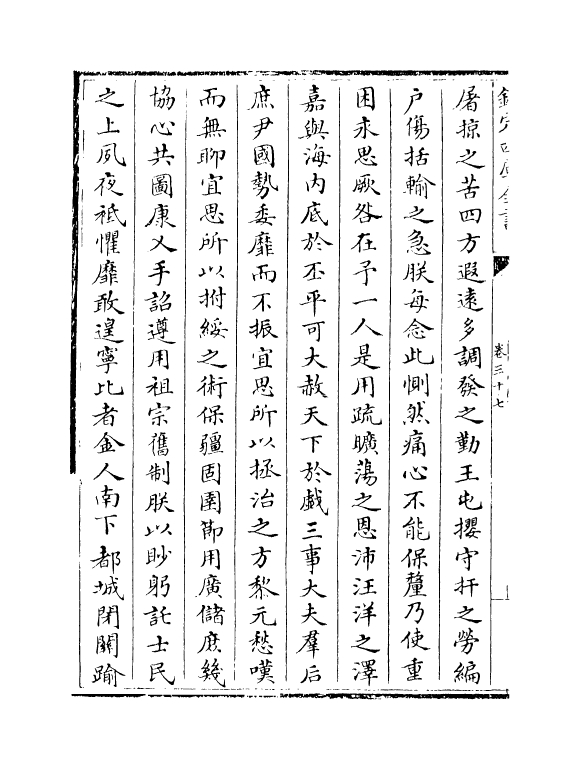 欽定四庫全書
卷三十七
屠掠之苦四方遐遠多調發之勤王屯攖守扞之勞編
户傷括輸之急朕每念此惻然痛心不能保釐乃使重
困永思厥咎在予一人是用疏曠蕩之恩沛汪洋之澤
嘉與海内底於丕平可大赦天下於戲三事大夫羣后
庶尹國勢委靡而不振宜思所以拯治之方黎元愁嘆
而無聊宜思所以拊綏之術保疆固圉節用廣儲庶幾
協心共圖康乂手詔遵用祖宗舊制朕以眇躬託士民
之上夙夜祗懼靡敢遑寧比者金人南下都城閉關踰